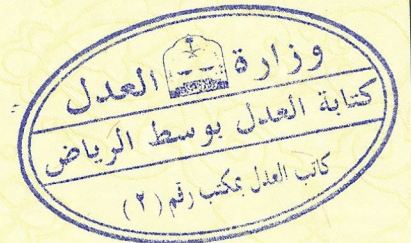 وزارة العدل
كتابة العدل بوسط الرياض
كاتب العدل بمكتب رقم (٢)